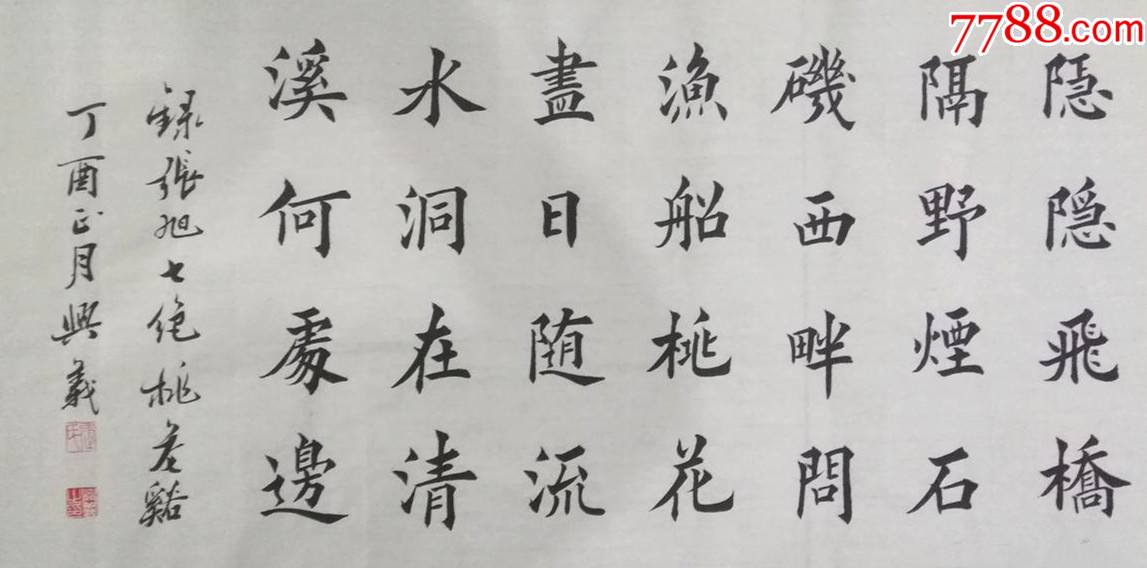 隠隐飛橋
隔野煙石
磯西畔問
漁船桃花
盡日随流
水洞在清
溪何處邊
録張旭七绝桃花谿
丁酉正月興義
7788.com